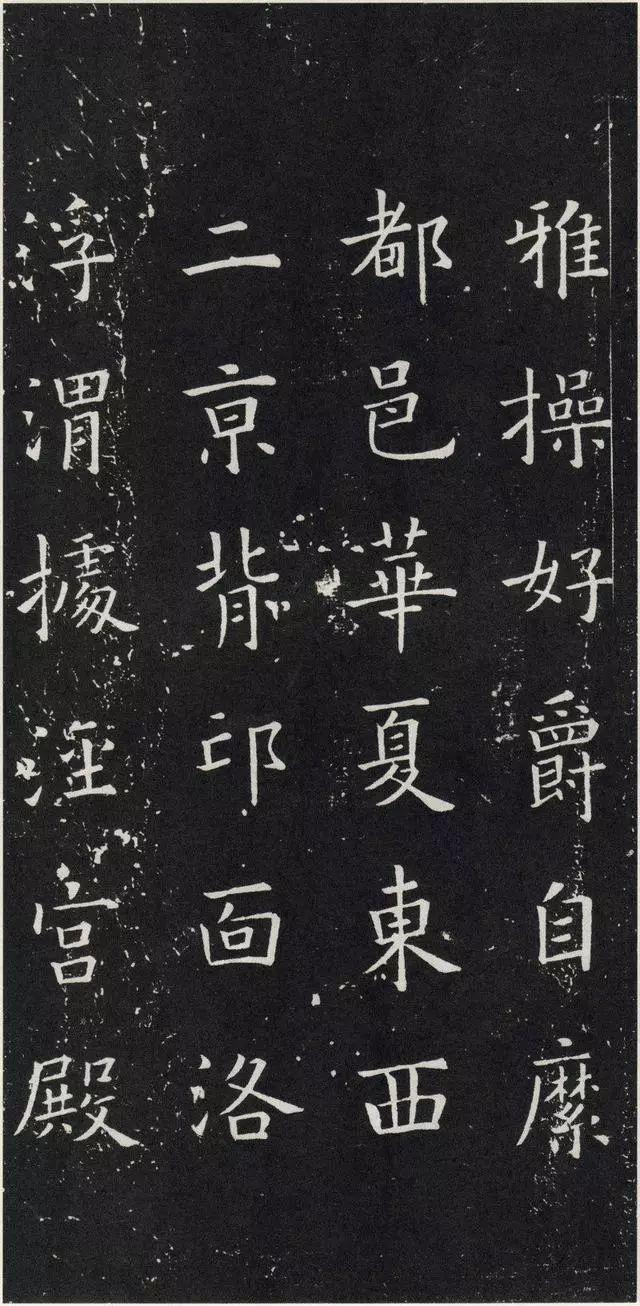 雅操好爵自縻
都邑華夏東西
二京背邙面洛
浮渭據涇宮殿